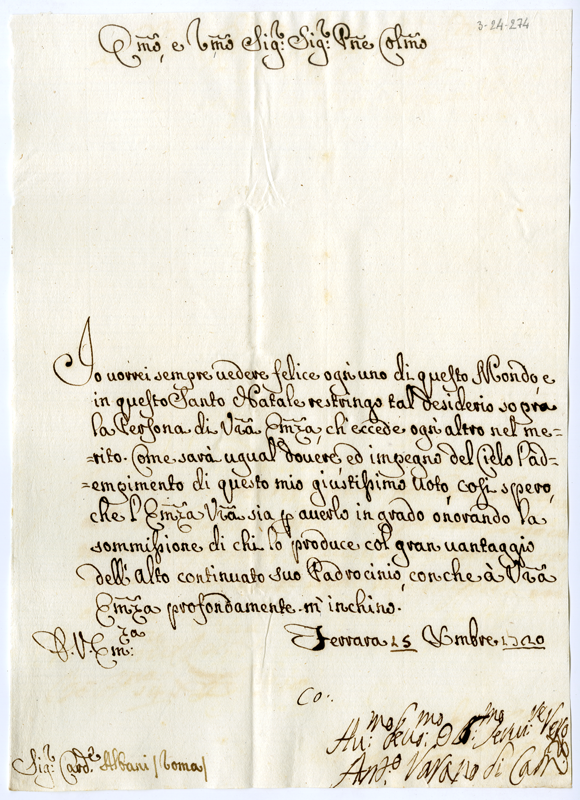 3-24-274
Em̃o, e Rm̃o Sigr: Sigr: Pñe Colm̃o
Io uorrei sempre uedere felice ogn'uno di questo Mondo, e
in questo Santo Natale restringo tal desiderio sopra
la Persona di Vr̃a Em̃za, ch'eccede ogn'altro nel me=
=rito. Come sarà ugual douere, ed impegno del Cielo l'ad=
=empimento di questo mio giustissimo Uoto, così spero,
che l'Em̃za Vr̃a sia p auerlo in grado onorando la
sommissione di chi lo produce col gran uantaggio
dell'alto continuato suo Padrocinio, con che à Vr̃a
Em̃za profondamente m'inchino.
D. V. Em:za Ferrara 25 Xmbre 1720
Co:
Hu:mo Deuo:mo Ob:mo Seruire Vero
Anto Varano di Cam
Sigr Card.le Albani /Roma/